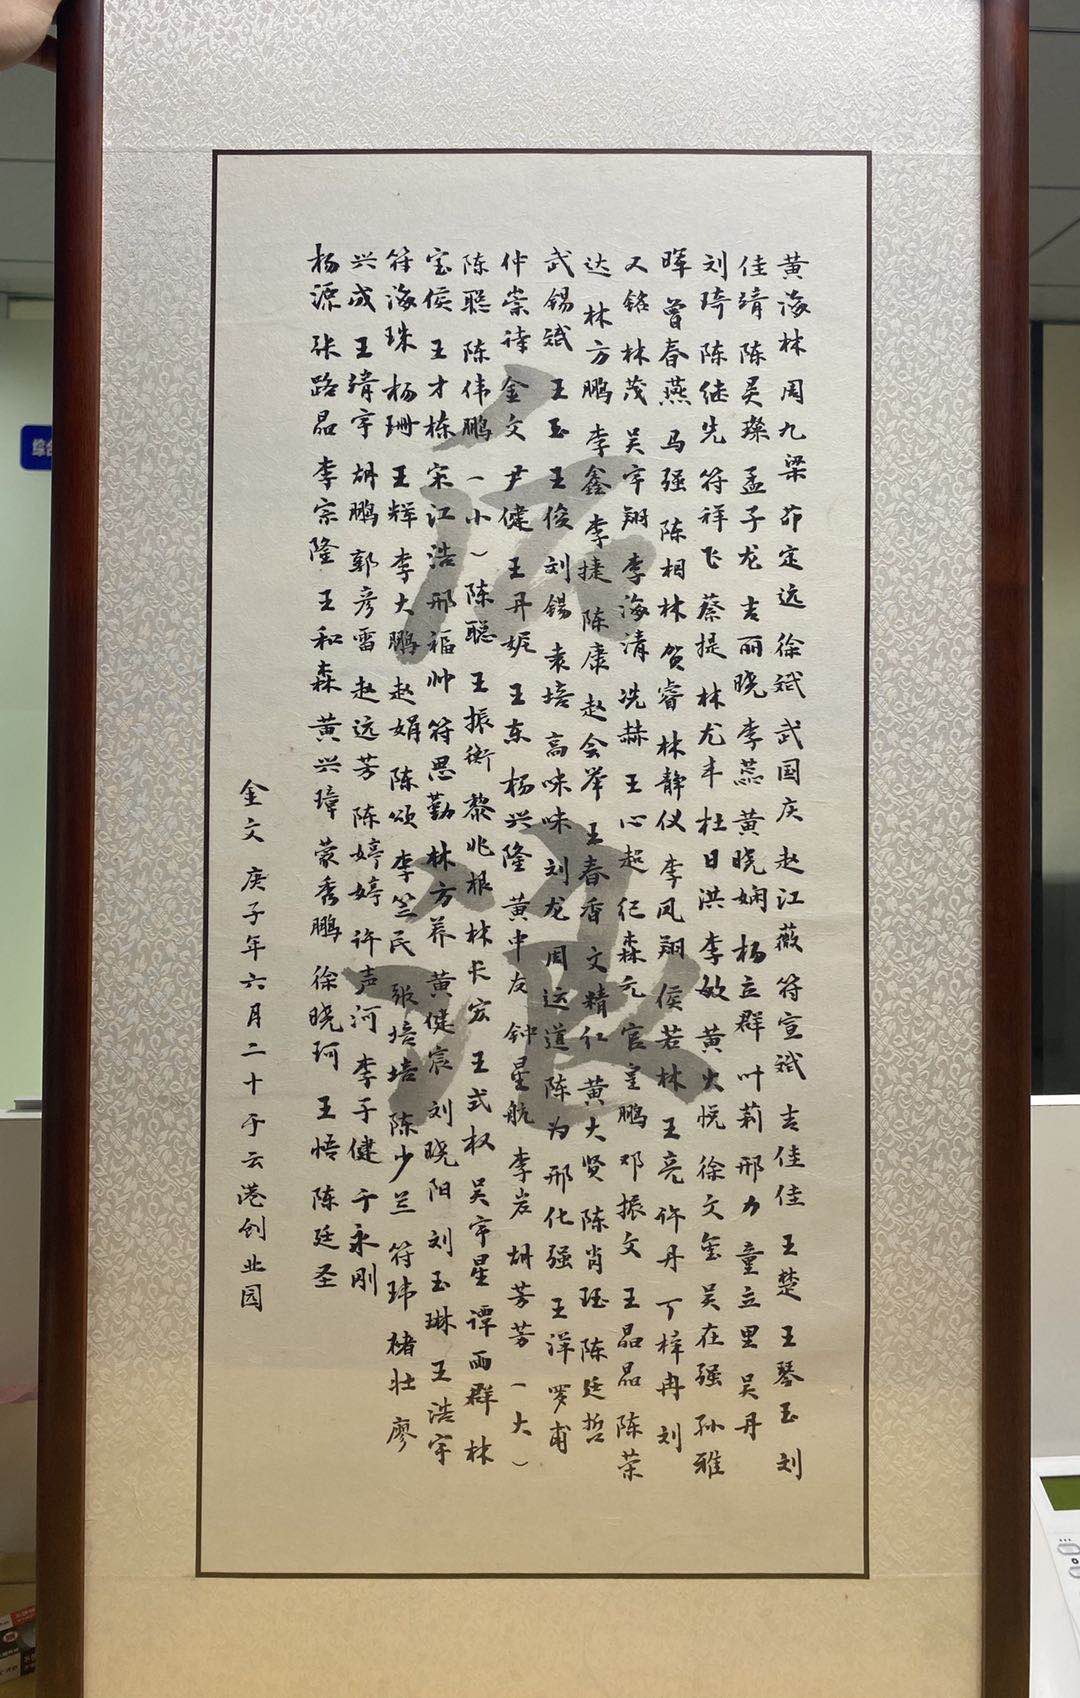 黄海林 周九梁 茆定远 徐斌 武国庆 赵江薇 符宣斌 吉佳佳 王楚 王琴玉 刘
佳靖 陈昊璨 孟子龙 吉丽晓 李蕊 黄晓娴 杨立群 叶莉 邢力 童立里 吴丹
刘琦 陈继先 符祥飞 蔡提 林尤丰 杜日洪 李敏 黄火悦 徐文玺 吴在强 孙雅
晖 曾春燕 马强 陈相林 贺睿 林静仪 李凤翔 侯若林 王亮 许丹 丁梓冉 刘
又铭 林茂 吴宇翔 李海清 冼赫 王心超 纪森元 官呈鹏 邓振文 王晶晶 陈荣
达 林方鹏 李鑫 李捷 陈康 赵会举 王春香 文精仁 黄大贤 陈肖珏 陈廷哲
武锡斌 王玉 王俊 刘锡 袁培 高咪咪 刘龙 周运道 陈为 邢化强 王洋 罗甫
仲崇诗 金文 尹健 王丹妮 王东 杨兴隆 黄中友 钟星航 李岩 胡芳芳 （大）
陈聪 陈伟鹏（小）陈聪 王振衡 黎兆根 林长宏 王式权 吴宇星 谭西群 林
宝侯 王才栋 宋江浩 邢福帅 符思勤 林方养 黄健宸 刘晓阳 刘玉琳 王浩宇
符海珠 杨珊 王辉 李大鹏 赵娟 陈颂 李竺民 张培培 陈少兰 符玮 褚壮 廖
兴成 王靖宇 胡鹏 郭彦雷 赵远芳 陈婷婷 许声河 李子健 于永刚
杨源 张路晶 李宗隆 王和森 黄兴璋 蒙秀鹏 徐晓珂 王悟 陈廷圣
金文 庚子年六月二十于云港创业园
综合